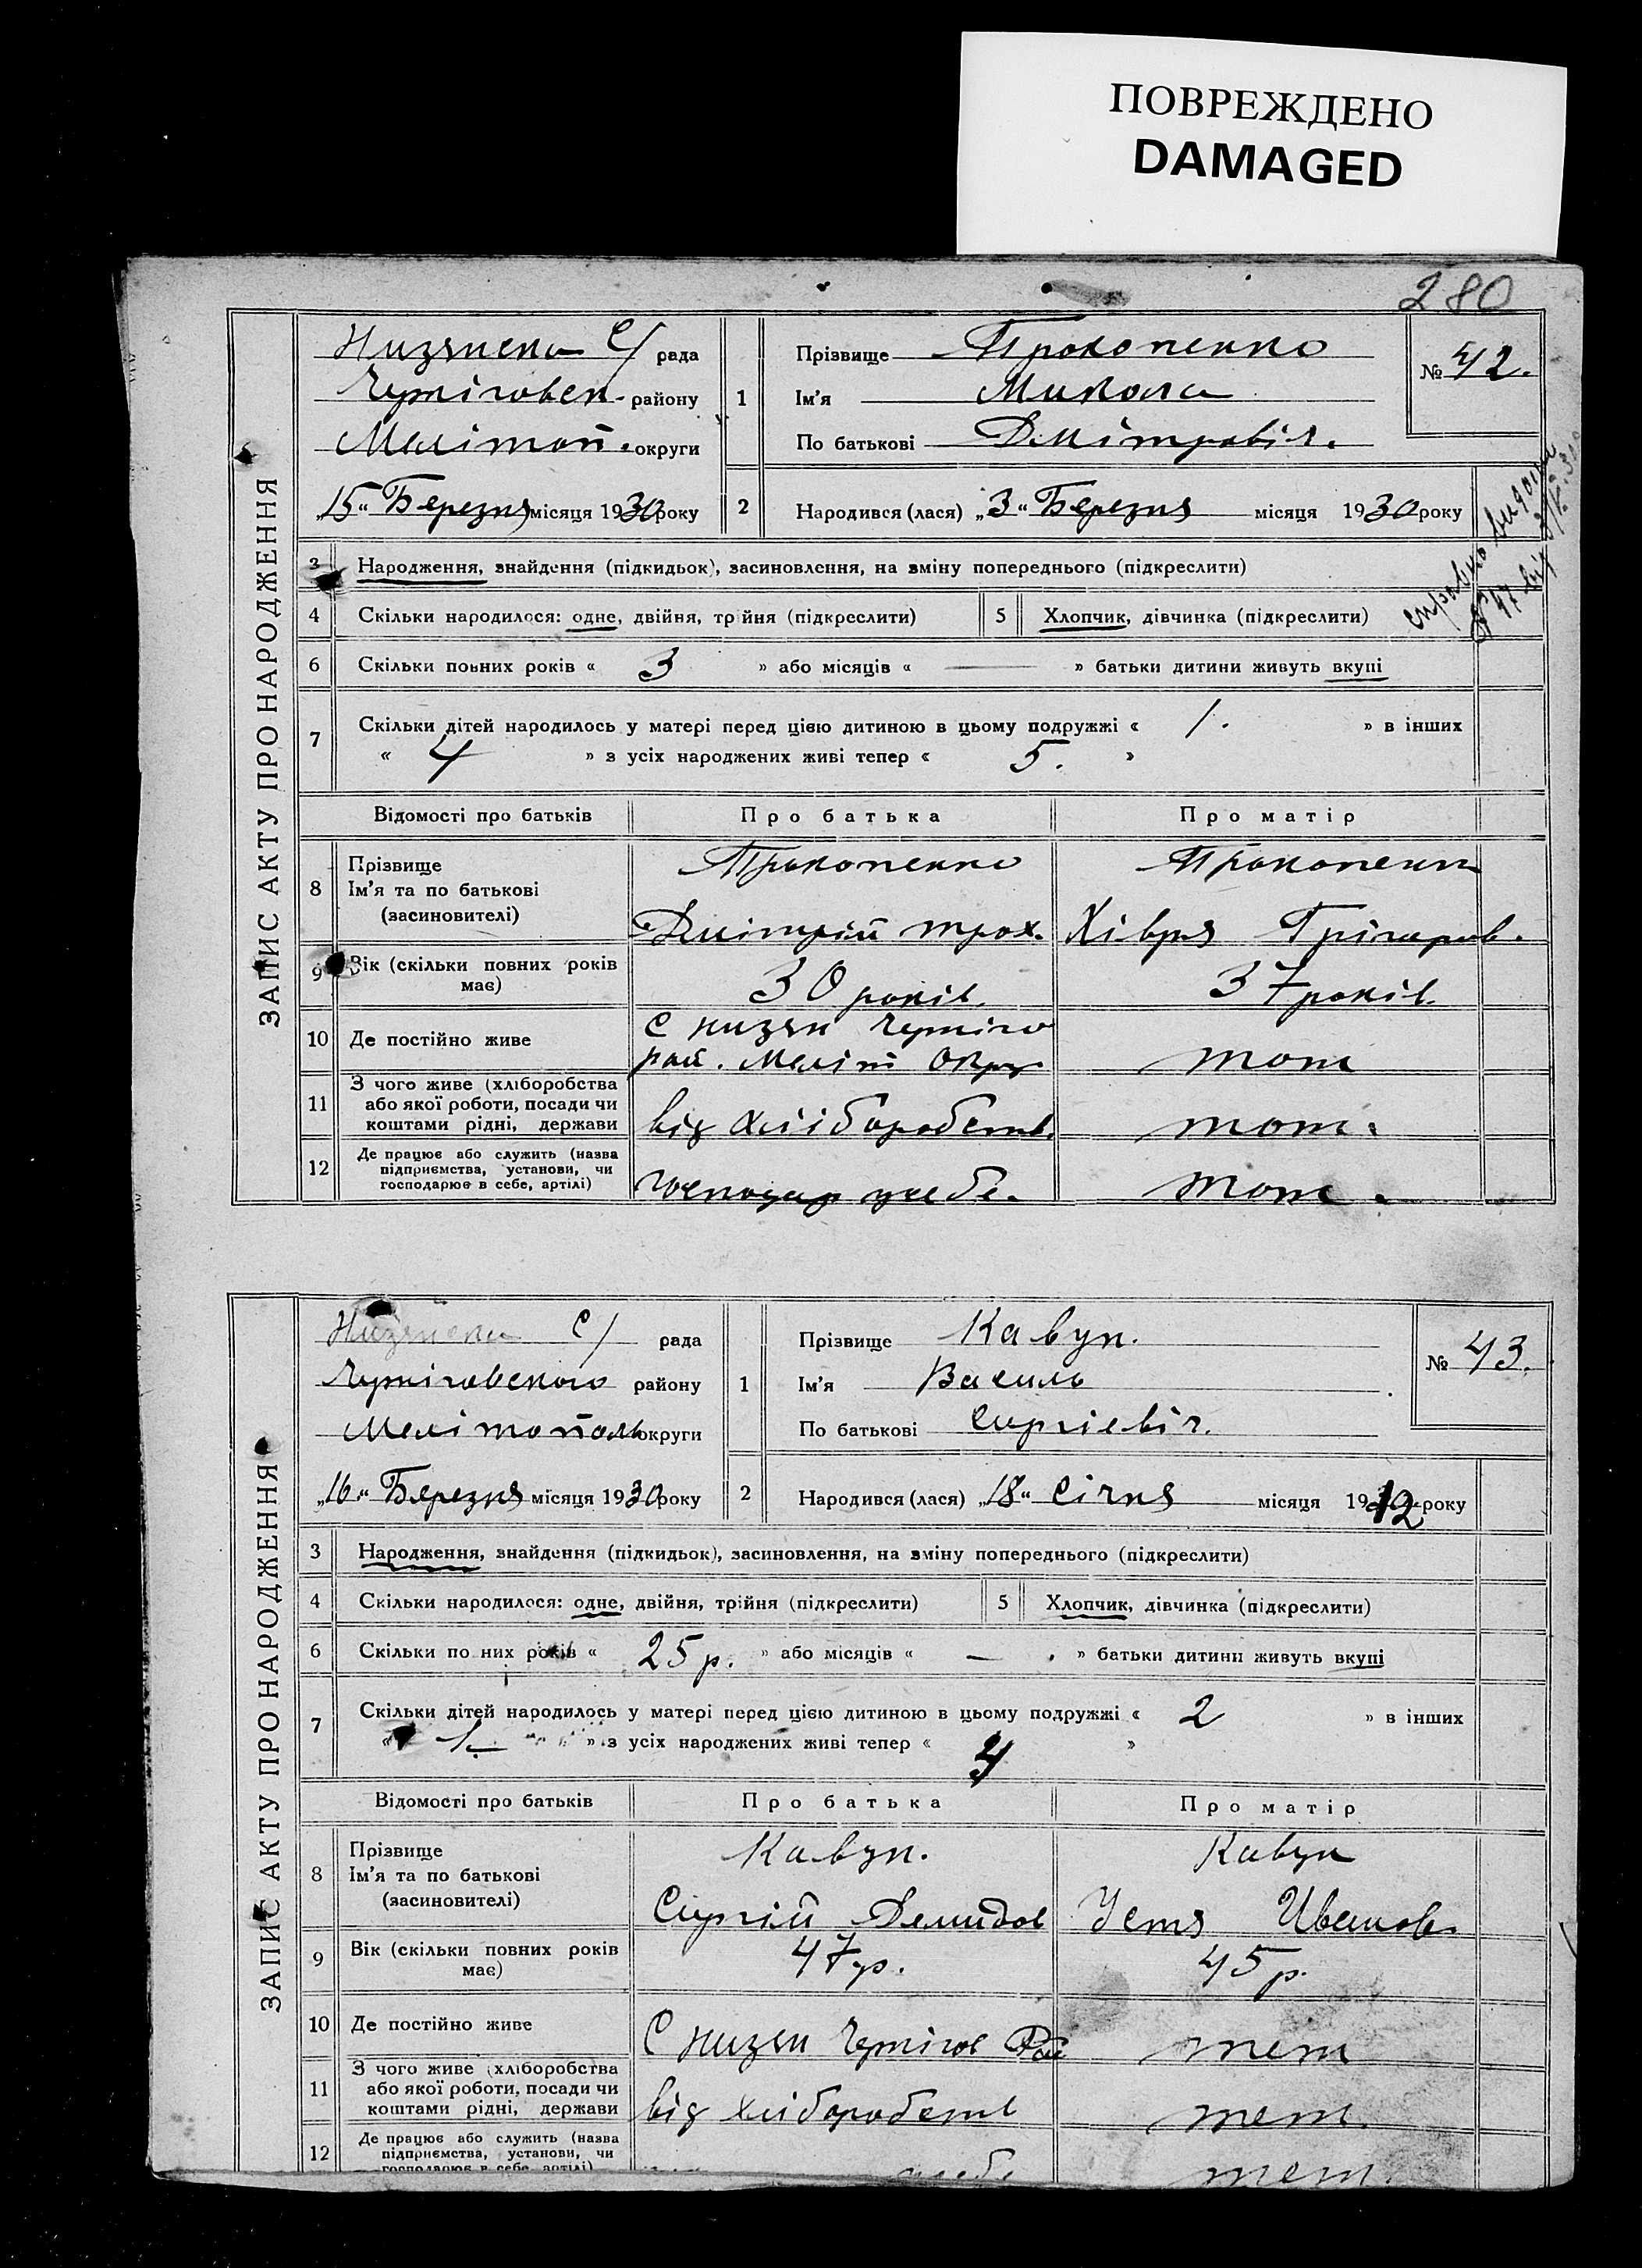 ПОВРЕЖДЕНО
DAMAGED
280
ЗАПИС АКТУ ПРО НАРОДЖЕННЯ
Низянска С/ рада
Черніговск. району
Меліт̄оп. округи
„15“ Березня місяця 1930 року
1
Прізвище Прокопенко
Ім’я Микола
По батькові Дмітровіч.
№ 42.
2
Народився (лася) „3“ Березня місяця 1930 року
3 Народження, знайдення (підкидьок), засиновлення, на зміну попереднього (підкреслити)
4 Скільки народилося: одне, двійня, трійня (підкреслити)
5 Хлопчик, дівчинка (підкреслити)
6 Скільки повних років « 3 » або місяців « — » батьки дитини живуть вкупі
7 Скільки дітей народилось у матері перед цією дитиною в цьому подружжі « 1. » в інших
« 4 » з усіх народжених живі тепер « 5. »
Відомості про батьків Про батька Про матір
8 Прізвище
Ім’я та по батькові
(засиновителі)
Прокопенко
Дмітрій Трох.
Прокопенко
Хівря Грігоров.
9 Вік (скільки повних років
має)
30 років.
37 років.
10 Де постійно живе
С Низян Черніго
рай. Меліт Окру
тот
11 З чого живе (хліборобства
або якої роботи, посади чи
коштами рідні, держави
від хліборобств.
тот.
12 Де працює або служить (назва
підприємства, установи, чи
господарює в себе, артілі)
господар у себе.
тот.
ЗАПИС АКТУ ПРО НАРОДЖЕННЯ
Низянска С/ рада
Черніговского району
Мелітополь округи
„16“ Березня місяця 1930 року
1
Прізвище Кавун.
Ім’я Василь
По батькові Сиргіевіч.
№ 43.
2
Народився (лася) „18“ Січня місяця 1912 року
3 Народження, знайдення (підкидьок), засиновлення, на зміну попереднього (підкреслити)
4 Скільки народилося: одне, двійня, трійня (підкреслити)
5 Хлопчик, дівчинка (підкреслити)
6 Скільки по них років « 25 р. » або місяців « — . » батьки дитини живуть вкупі
7 Скільки дітей народилось у матері перед цією дитиною в цьому подружжі « 2 » в інших
« 1. » з усіх народжених живі тепер « 4 »
Відомості про батьків Про батька Про матір
8 Прізвище
Ім’я та по батькові
(засиновителі)
Кавун.
Сиргій Демидов
Кавун
Устя Иванов.
9 Вік (скільки повних років
має)
47 р.
45 р.
10 Де постійно живе
С Низян Чернігов Рай
тет
11 З чого живе (хліборобства
або якої роботи, посади чи
коштами рідні, держави
від хліборобств
тет.
12 Де працює або служить (назва
підприємства, установи, чи
господарює в себе, артілі)
тет.